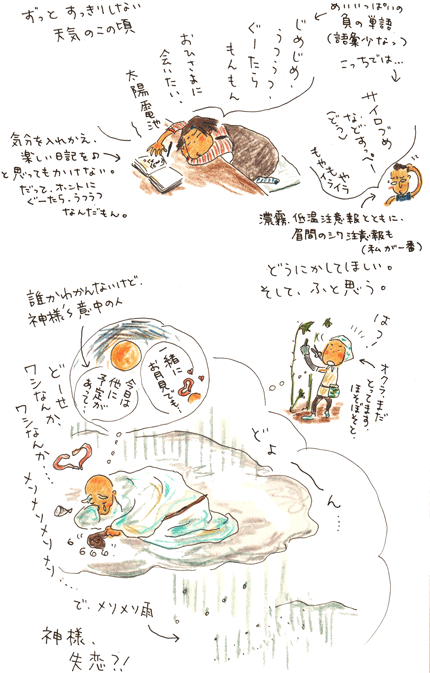 ずっと すっきりしない
天気のこの頃
めいいっぱいの
負の単語
(語彙少なっ)
こっちでは…
じめじめ、
うつうつ、
ぐーたら
もんもん
おひさまに
会いたい、
太陽電池
サイロづめ
などすっぺー
(どつ)
もやもや
イライラ
気分を入れかえ、
楽しい日記を♪
と思ってもかけない。
だって、ホントに
ぐーたら、うつうつ
なんだもん。
濃霧、低温注意報とともに、
眉間のシワ注意報も
(私が一番)
どうにかしてほしい。
そして、ふと思う。
はっ!
オクラ、まだ
とってます。
ほそぼそと。
誰かわかんないけど、
神様's 意中の人
一緒に
お月見でも…
今日は
他に
予定が
あって…
どーせ、
ワシなんか、
ワシなんか…
メソメソメソメソ…
666
どよ
ーん…
で、メソメソ雨
神様、
失恋?!